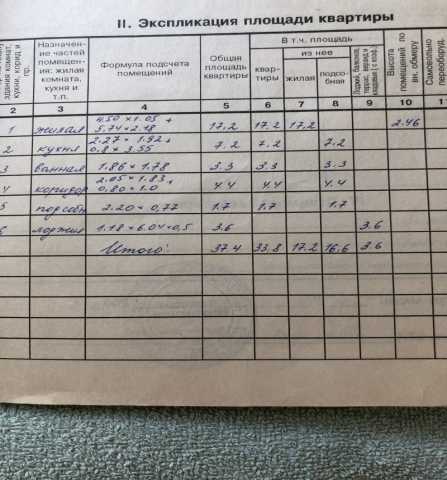 II. Экспликация площади квартиры
здания комнат, кухни, корид и пр.
Назначение частей помещения: жилая комната, кухня и т.п.
Формула подсчета помещений
Общая площадь квартиры
В т.ч. площадь
квартиры
из нее
жилая
подсобная
Лоджий, балконов, террас, веранд и кладовых (с коэф.)
Высота помещений по вн. обмеру
Самовольно переоборуд.
2 3 4 5 6 7 8 9 10 11
1 жилая 4.50×1.05+ 3.74×2.18 17.2 17.2 17.2 2.46
2 кухня 2.27×1.92+ 0.8×3.55 7.2 7.2 7.2
3 ванная 1.86×1.78 3.3 3.3 3.3
4 коридор 2.05×1.83+ 0.80×1.0 4.4 4.4 4.4
5 подсобн 2.20×0,77 1.7 1.7 1.7
6 лоджия 1.18×6.04×0,5 3.6 3.6
Итого: 37.4 33.8 17.2 16.6 3.6